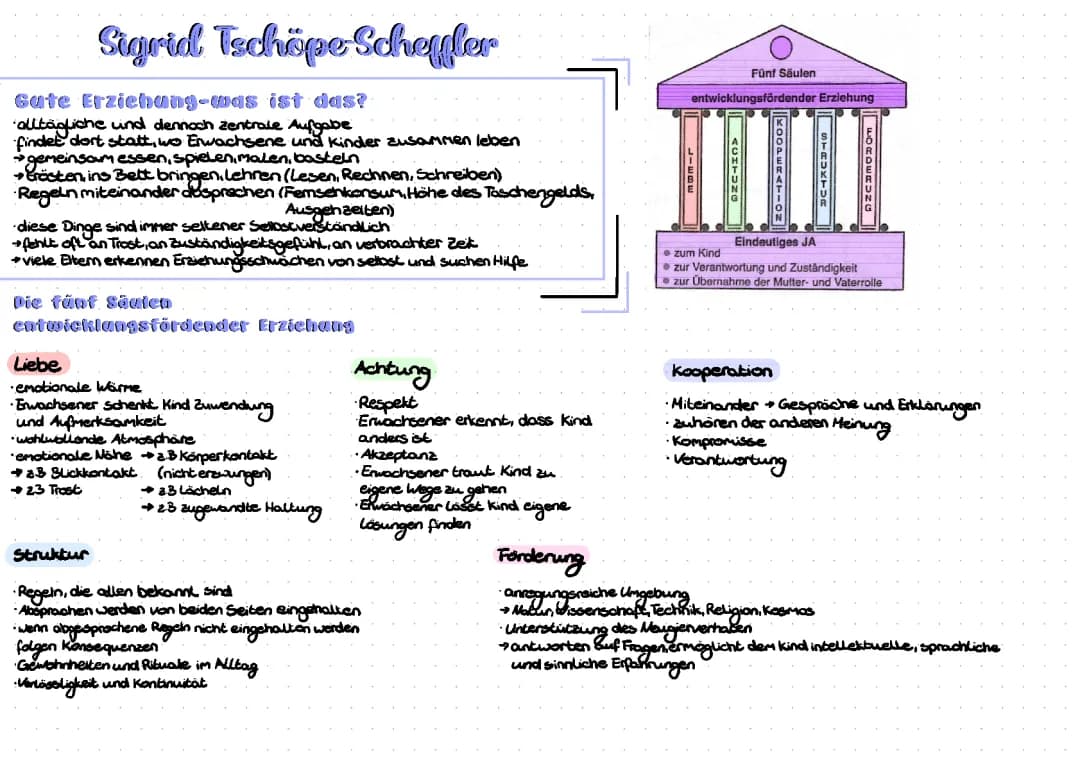 Sigrid Tschöpe-Scheffler
Gute Erziehung-was ist das?
·alltägliche und dennoch zentrale Aufgabe
·findet dort statt, wo Erwachsene und Kinder zusammen leben
→gemeinsam essen, spielen, malen, basteln
→trösten, ins Bett bringen, Lehren (Lesen, Rechnen, Schreiben)
·Regeln miteinander absprechen (Fernsehkonsum, Höhe des Taschengelds,
Ausgehzeiten)
·diese Dinge sind immer seltener Selbstverständlich
→fehlt oft an Trost, an Zuständigkeitsgefühl, an verbrachter Zeit
→viele Eltern erkennen Erziehungsschwächen von selbst und suchen Hilfe
Fünf Säulen
entwicklungsfördender Erziehung
LIEBE
ACHTUNG
KOOPERATION
STRUKTUR
FÖRDERUNG
Eindeutiges JA
• zum Kind
• zur Verantwortung und Zuständigkeit
• zur Übernahme der Mutter- und Vaterrolle
Die fünf Säulen
entwicklungsfördender Erziehung
Liebe
·emotionale Wärme
·Erwachsener schenkt Kind Zuwendung
und Aufmerksamkeit
·wohlwollende Atmosphäre
·emotionale Nähe → z.B Körperkontakt
→ z.B Blickkontakt (nicht erzwungen)
→ z.B Trost → z.B Lächeln
→ z.B zugewandte Haltung
Achtung
·Respekt
·Erwachsener erkennt, dass Kind
anders ist
·Akzeptanz
·Erwachsener traut Kind zu
eigene Wege zu gehen
·Erwachsener lässt Kind eigene
Lösungen finden
Kooperation
·Miteinander → Gespräche und Erklärungen
·zuhören der anderen Meinung
·Kompromisse
·Verantwortung
Struktur
·Regeln, die allen bekannt sind
·Absprachen werden von beiden Seiten eingehalten
·wenn abgesprochene Regeln nicht eingehalten werden
folgen Konsequenzen
·Gewohnheiten und Rituale im Alltag
·Verlässligkeit und Kontinuität
Förderung
·anregungsreiche Umgebung
→ Natur, Wissenschaft, Technik, Religion, Kosmos
·Unterstützung des Neugierverhalten
→antworten auf Fragen, ermöglicht dem Kind intellektuelle, sprachliche
und sinnliche Erfahrungen